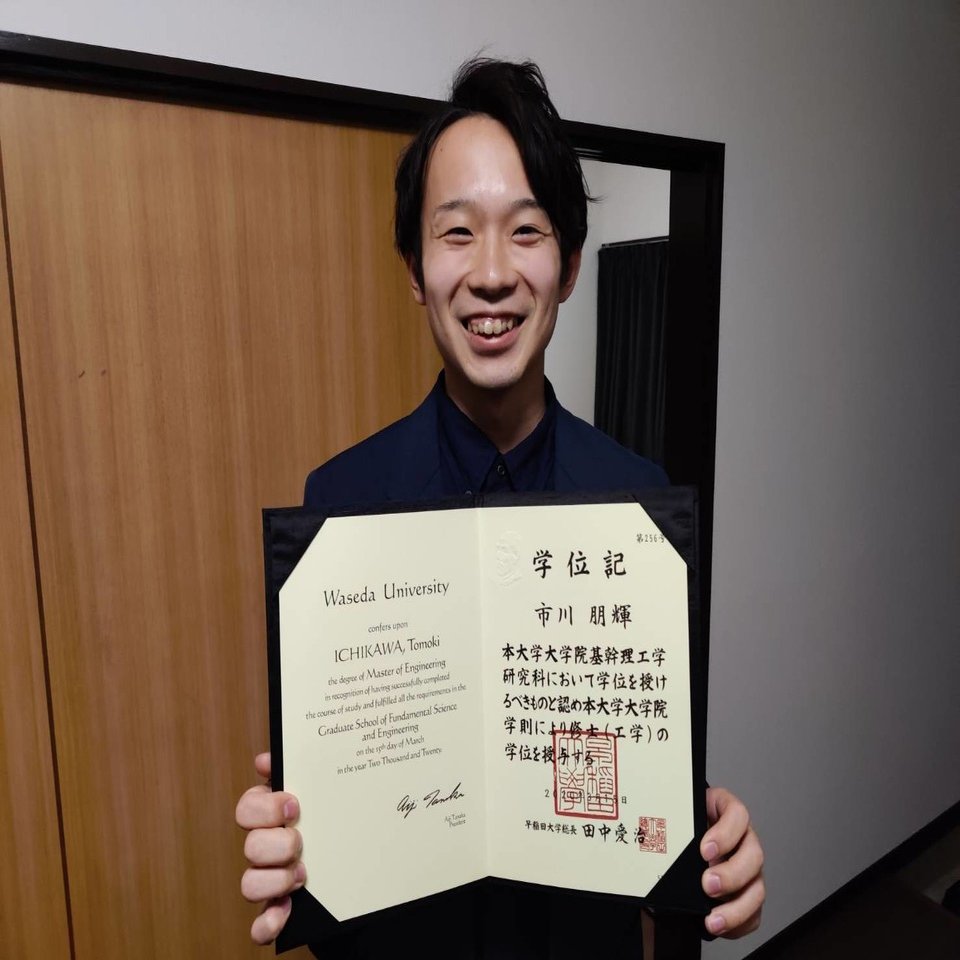 Waseda University
confers upon
ICHIKAWA, Tomoki
the degree of Master of Engineering
in recognition of having successfully completed
the course of study and fulfilled all the requirements in the
Graduate School of Fundamental Science
and Engineering
on the 15th day of March
in the year Two Thousand and Twenty
Aiji Tanaka
Aiji Tanaka
President
第256号
学位記
市川 朋輝
本大学大学院基幹理工学
研究科において学位を授け
るべきものと認め本大学大学院
学則により修士(工学)の
学位を授与する
早稲田大学総長 田中愛治